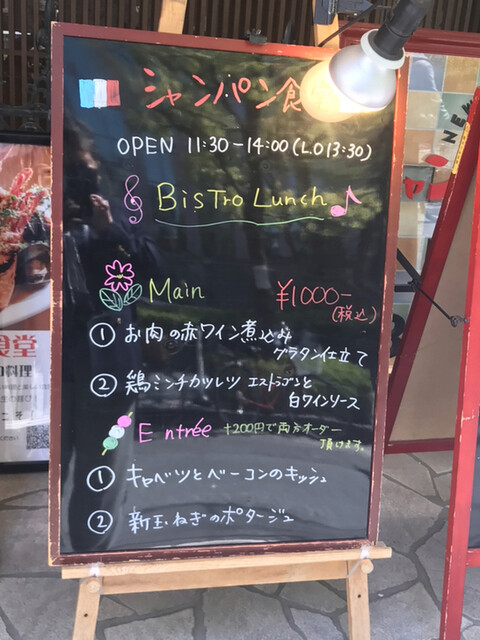 シャンパン食
OPEN 11:30-14:00 (L.O 13:30)
BisTro Lunch
Main
¥1000-
(税込)
① お肉の赤ワイン煮込み
グラタン仕立て
② 鶏ミンチカツレツ エストラゴンと
白ワインソース
Entrée +200円で両方オーダー
頂けます。
① キャベツとベーコンのキッシュ
② 新玉ねぎのポタージュ
食堂
料理
NEW